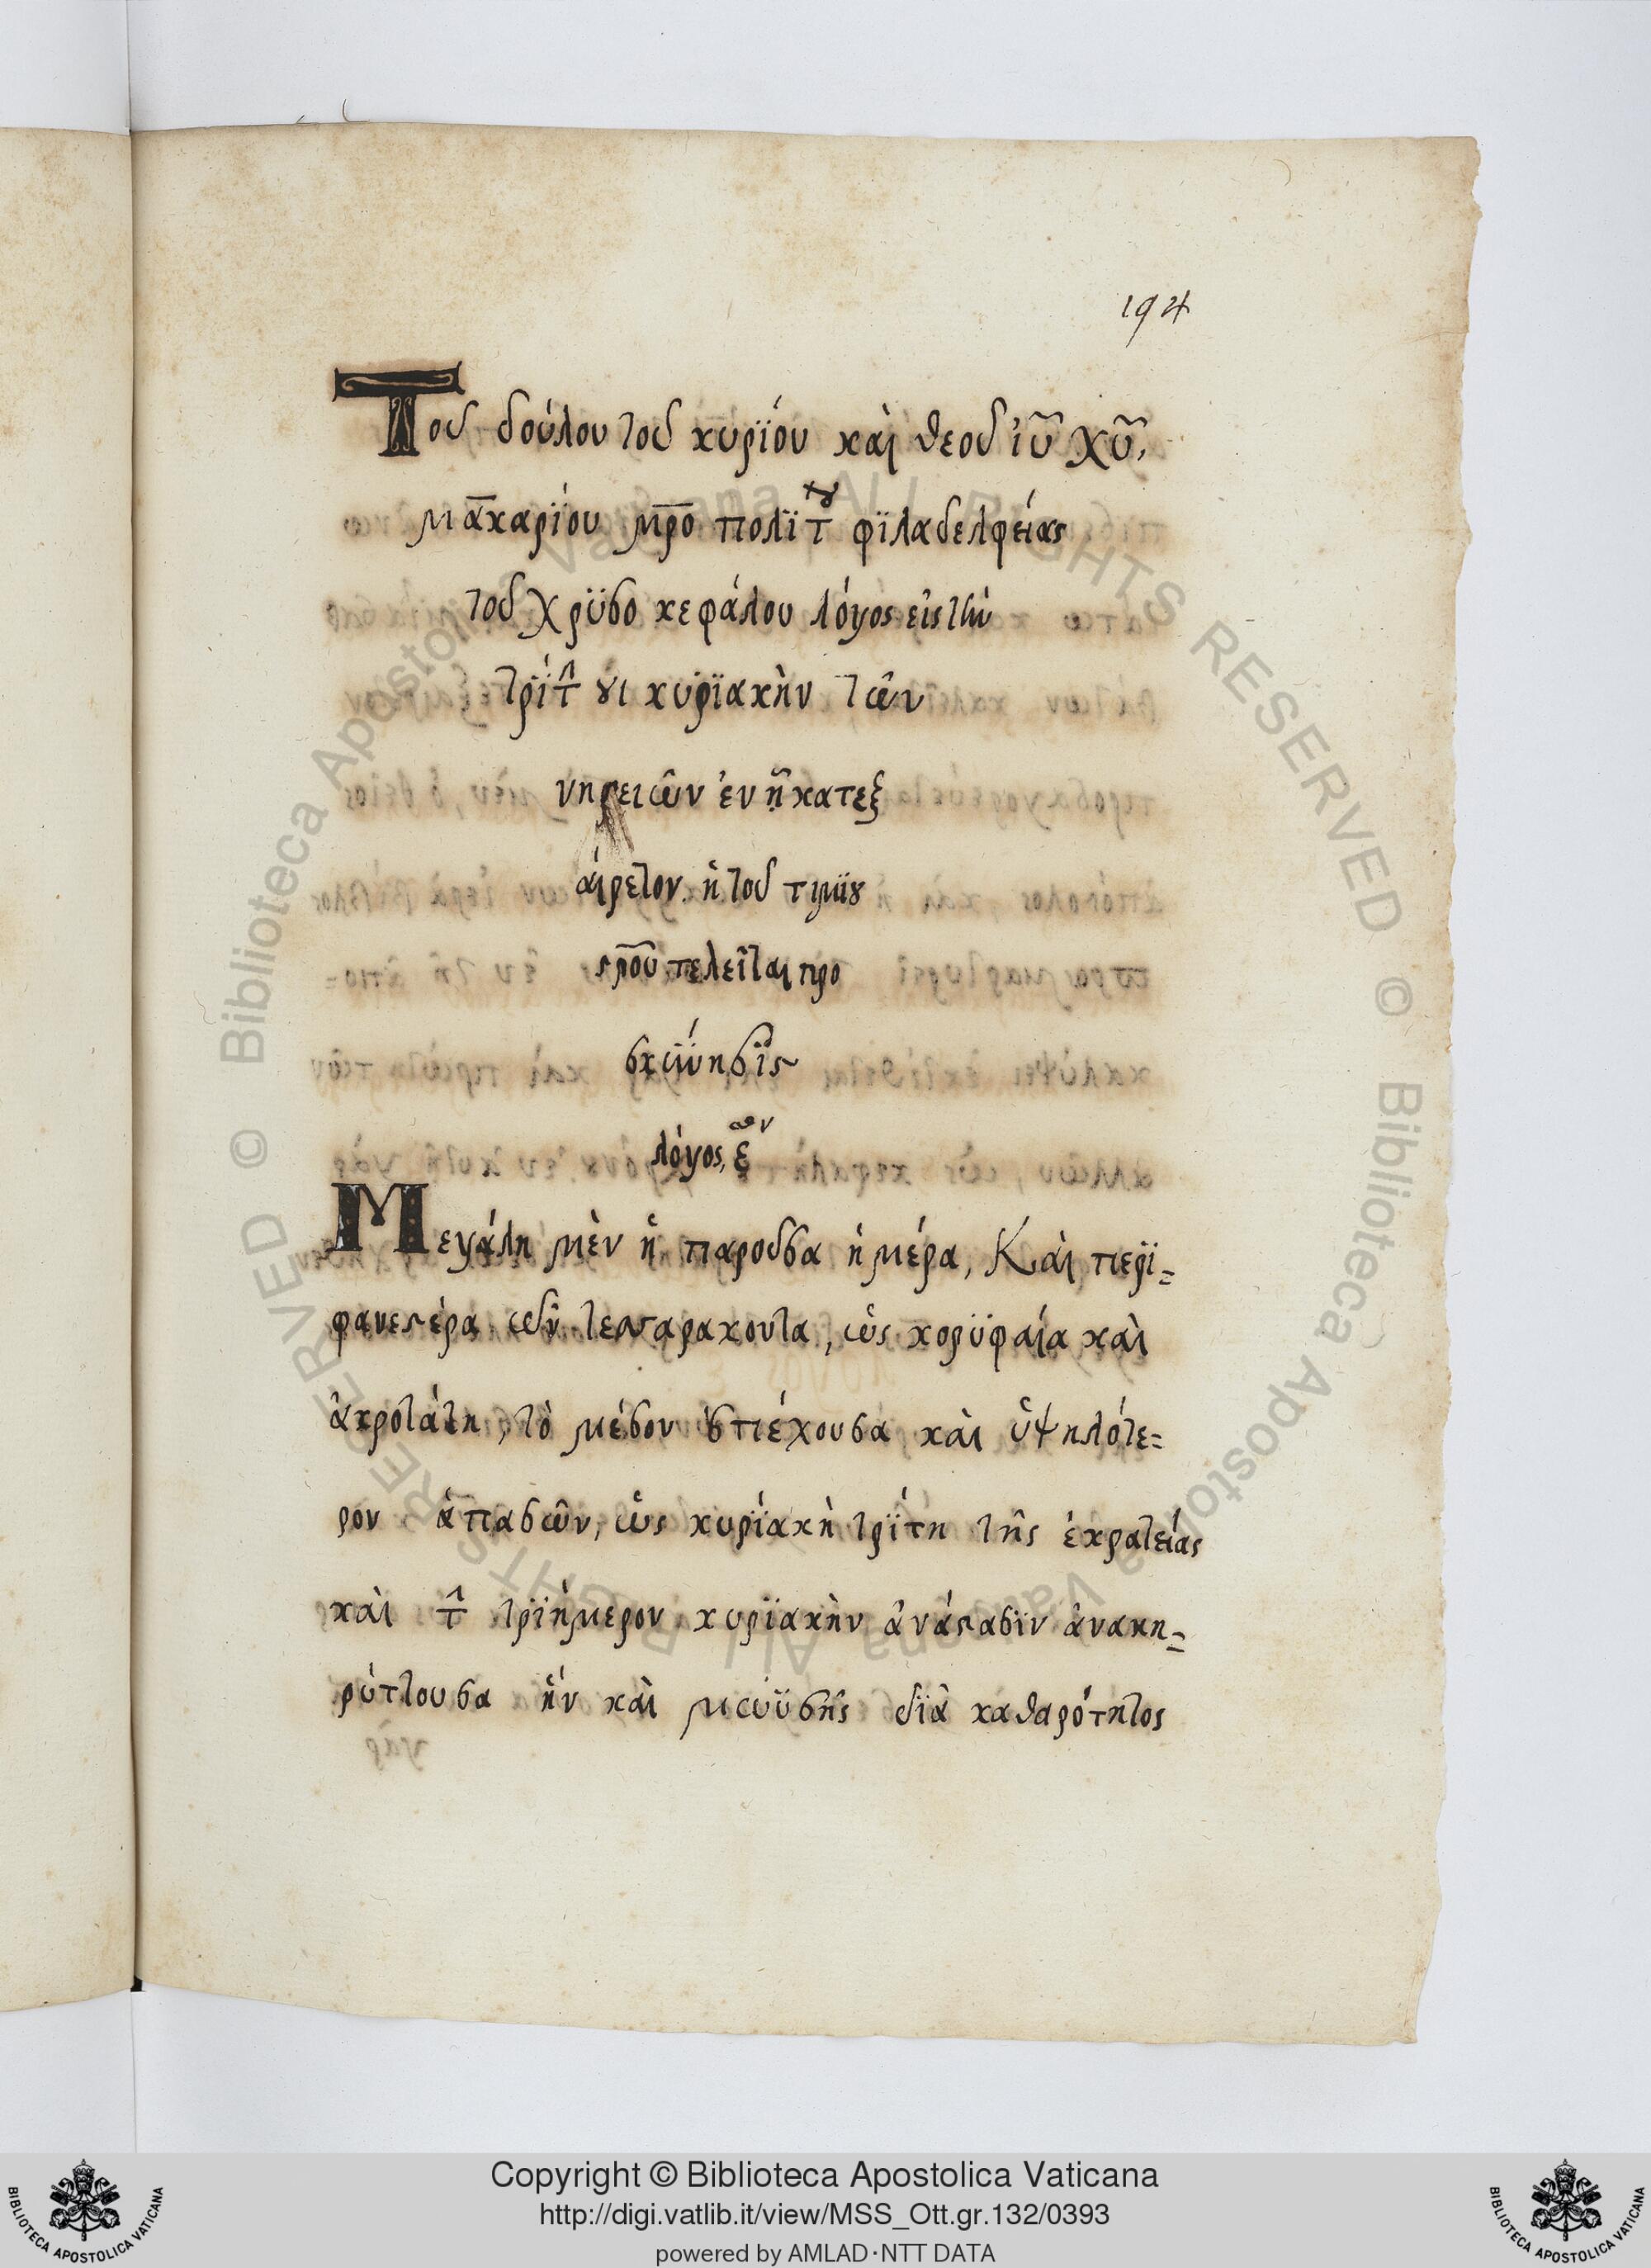 194
Τοῦ δούλου τοῦ κυρΐου καὶ θεοῦ ἰῦ χῦ,
μακαρΐου μρο πολϊτ φϊλαδελφείας
τοῦ χρϋσο κεφάλου λόγος εἰς τὴν
τρίτ κυρϊακὴν τῶν
νηστειῶν ἐν ᾗ κατεξ
αίρετον ἡ τοῦ τιμΐου
σρ̅ου τελεῖται προ
σκύνησϊς
λόγος, ε
Μεγάλη μὲν ἡ παροῦσα ἡμέρα, Καὶ περϊ=
φανεστέρα τῶν τεσσαρακοντα, ὡς κορϋφαία καὶ
ἀκροτάτη, τὸ μέσον ἐπέχουσα καὶ ὑψηλότε=
ρον ἁπασῶν, ὡς κυρΐακὴ τρΐτη τῆς ἐκρατείας
καὶ τ τρϊήμερον κυρϊακὴν ἀνάστασϊν ἀνακη=
ρύττουσα ἣν καὶ μωϋσῆς δϊὰ καθαρότητος
Copyright © Biblioteca Apostolica Vaticana
http://digi.vatlib.it/view/MSS_Ott.gr.132/0393
powered by AMLAD·NTT DATA
BIBLIOTECA APOSTOLICA VATICANA
BIBLIOTECA APOSTOLICA VATICANA
© Biblioteca Apostolica Vaticana ALL RIGHTS RESERVED
© Biblioteca Apostolica Vaticana ALL RIGHTS RESERVED